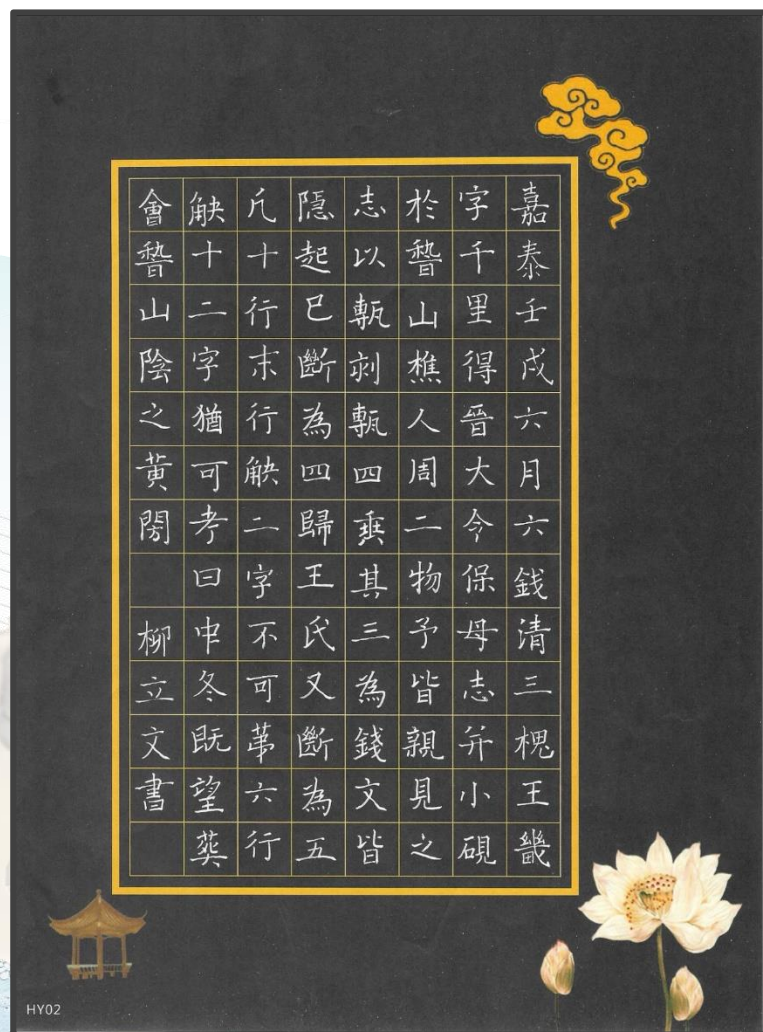 嘉泰壬戌六月六錢清三槐王畿
字千里得晉大令保母志并小硯
於稽山樵人周二物予皆親見之
志以甎刻甎四垂其三為錢文皆
隱起已斷為四歸王氏又斷為五
凡十行末行觖二字不可苐六行
觖十二字猶可考曰中冬既望葬
會稽山陰之黃閍 柳立文書
HY02